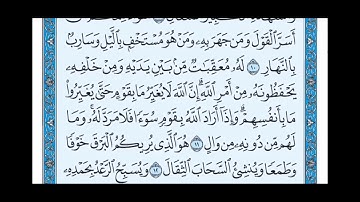 أَسَرَّ ٱلْقَوْلَ وَمَن جَهَرَ بِهِۦ وَمَنْ هُوَ مُسْتَخْفٍۭ بِٱلَّيْلِ وَسَارِبٌۢ
بِٱلنَّهَارِ ۝١٠ لَهُۥ مُعَقِّبَٰتٌ مِّنۢ بَيْنِ يَدَيْهِ وَمِنْ خَلْفِهِۦ
يَحْفَظُونَهُۥ مِنْ أَمْرِ ٱللَّهِ ۗ إِنَّ ٱللَّهَ لَا يُغَيِّرُ مَا بِقَوْمٍ حَتَّىٰ يُغَيِّرُوا۟
مَا بِأَنفُسِهِمْ ۗ وَإِذَآ أَرَادَ ٱللَّهُ بِقَوْمٍ سُوٓءًا فَلَا مَرَدَّ لَهُۥ ۚ وَمَا
لَهُم مِّن دُونِهِۦ مِن وَالٍ ۝١١ هُوَ ٱلَّذِى يُرِيكُمُ ٱلْبَرْقَ خَوْفًا
وَطَمَعًا وَيُنشِئُ ٱلسَّحَابَ ٱلثِّقَالَ ۝١٢ وَيُسَبِّحُ ٱلرَّعْدُ بِحَمْدِهِۦ